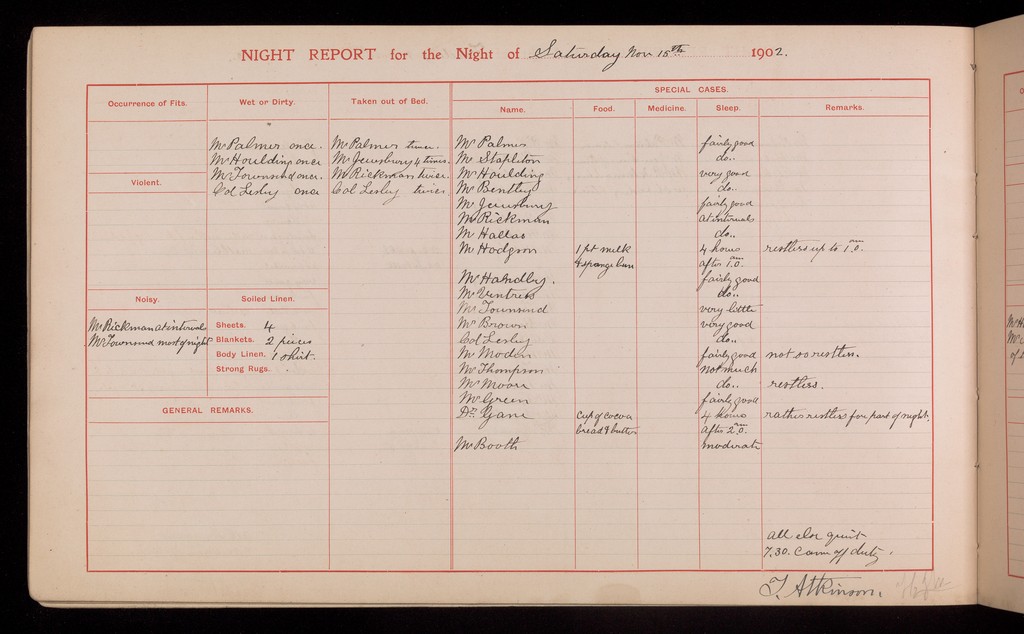 NIGHT REPORT for the Night of Saturday Nov 15th 1902.
Occurrence of Fits.
Wet or Dirty.
Mr Palmer once.
Mr Houlding once
Mr Townsend once.
Col Lesley once
Taken out of Bed.
Mr Palmer twice.
Mr Jewesbury 4 times.
Mr Rickman twice.
Col Lesley twice
Violent.
Noisy.
Mr Rickman at intervals
Mr Townsend most of night
Soiled Linen.
Sheets. 4
Blankets. 2 pieces
Body Linen. 1 shirt.
Strong Rugs.
GENERAL REMARKS.
SPECIAL CASES.
Name. Food. Medicine. Sleep. Remarks.
Mr Palmer fairly good
Mr Stapleton do..
Mr Houlding very good
Mr Bentley do..
Mr Jewesbury fairly good
Mr Rickman at intervals
Mr Hallas do..
Mr Hodgson 1 pt milk 4 hours restless up to 1.0. am
& sponge bun after 1.0. am
Mr Handby. fairly good
Mr Ventress do..
Mr Townsend very little
Mr Brown very good
Col Lesley do..
Mr Moden fairly good not so restless.
Mr Thompson not much
Mr Moore do.. restless.
Mr Green fairly good
Dr. Gane cup of cocoa 4 hours rather restless for part of night.
bread & butter after 2.0. am
Mr Booth moderate
all else quiet
7.30. Came off duty.
T. Atkinson.